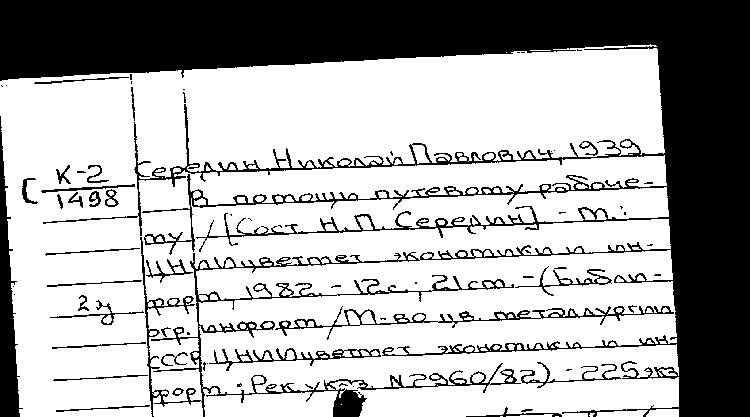 К-2 Середин, Николай Павлович, 1939
1498 В помощи путевому рабоче-
му / [Сост. Н.П. Середин] - М.:
ЦНИИцветмет экономики и ин-
2 у форм, 1982. - 12с.; 21см. - (Библи-
огр. информ / М-во цв. металлургии
СССР, ЦНИИцветмет экономики и ин-
форм; Рек. указ. N2960/82). - 225 экз